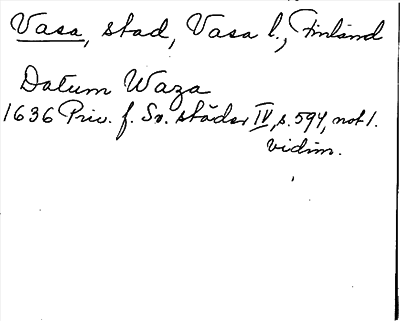 Vasa, stad, Vasa l., Finland
Datum Waza
1636 Priv. f. Sv. städer IV, s. 594, not 1.
vidim.